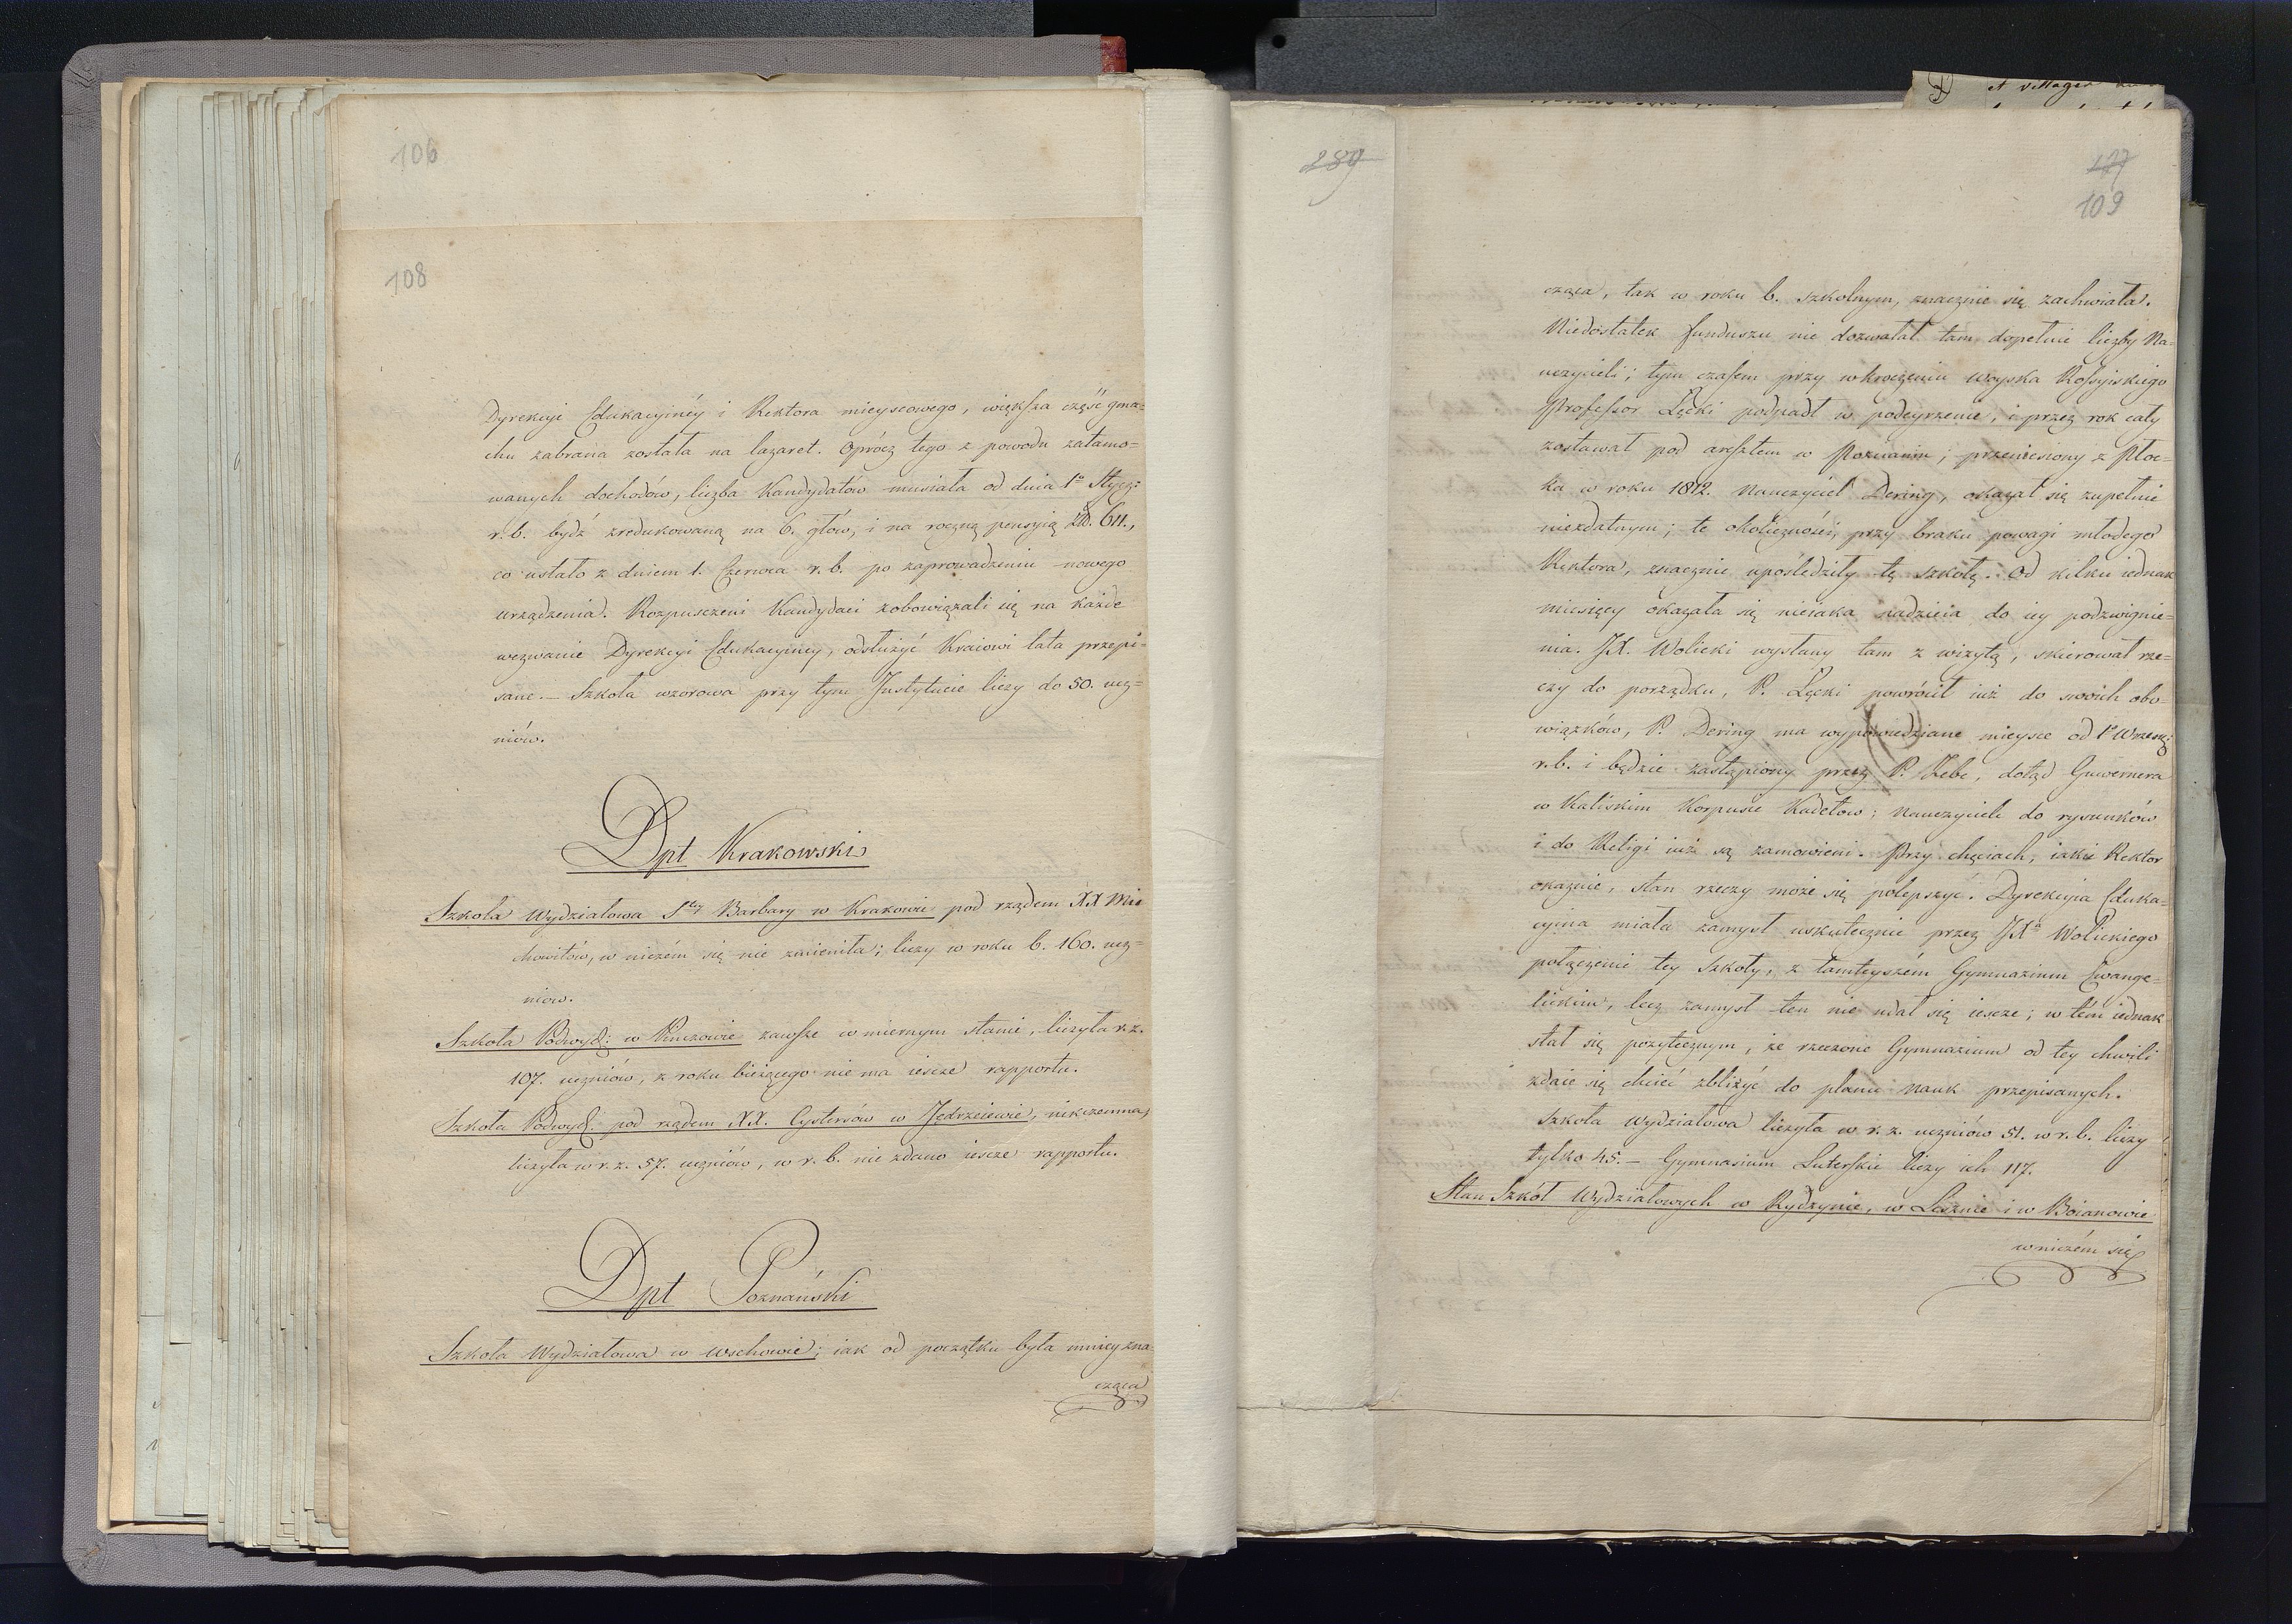 106
108
Dyrekcyi Edukacyinéy i Rektora mieyscowego, większa część gma=
chu zabrana została na lazaret. Oprócz tego z powodu zatamo=
wanych dochodów, liczba Kandydatów musiała od dnia 1º Stycz:
r. b. bydź zredukowaną na 6. głów, i na roczną pensyią 611.,
co ustało z dniem 1. Czerwca r. b. po zaprowadzeniu nowego
urządzenia. Rozpuszczeni Kandydaci zobowiązali się na każde
wezwanie Dyrekcyi Edukacyiney, odsłużyć Kraiowi lata przepi=
sane. — Szkoła wzorowa przy tym Instytucie liczy do 50. ucz=
niów.
Dpt Krakowski
Szkoła Wydziałowa Stey Barbary w Krakowie pod rządem XX Mie
chowitów, w niczém się nie zmieniła; liczy w roku b. 160. ucz=
niow.
Szkoła Podwydz: w Pinczowie zawsze w miernym stanie, liczyła r. z.
107. uczniów, z roku bieżącego nie ma iescze rapportu.
Szkoła Podwydz: pod rządem XX. Cystersów w Jędrzeiewie, nikczemna,
liczyła w r. z. 57. uczniów, w r. b. nie zdano iescze rapportu.
Dpt Poznański
Szkoła Wydziałowa w Wschowie; iak od początku była mniey zna
cząca
289
177
109
et villages
cząca, tak w roku b. szkolnym, znacznie się zachwiała.
Niedostatek funduszu nie dozwalał tam dopełnić liczby Na=
uczycieli; tym czasem przy wkroczeniu woyska Rossyiskiego
Professor Łęcki podpadł w podeyrzenie, i przez rok cały
zostawał pod aresztem w Poznaniu; przeniesiony z Płoc=
ka w roku 1812. Nauczyciel Dering, okazał się zupełnie
niezdatnym; te okoliczności, przy braku powagi młodego
Rektora, znacznie upośledziły tę szkołę. Od kilku iednak
miesięcy okazała się nieiaka nadzieia do iey podzwignie=
nia. JX. Wolicki wysłany tam z wizytą, skierował rze=
czy do porządku, P. Łęcki powrócił iuż do swoich obo=
wiązków, P. Dering ma wypowiedziane mieysce od 1º Wrześ:
r. b. i będzie zastąpiony przez P. Zebe, dotąd Guwernera
w Kaliskim Korpusie Kadetow; Nauczyciele do rysunków
i do Religi iuż są zamowieni. Przy chęciach, iakie Rektor
okazuie, stan rzeczy może się polepszyć. Dyrekcyia Eduka=
cyina miała zamysł uskutecznić przez JXa Wolickiego
połączenie tey Szkoły, z tamteyszém Gymnazium Ewange=
lickim, lecz zamysł ten nie udał się iescze; w tém iednak
stał się pożytecznym, że rzeczone Gymnazium od tey chwili
zdaie się chcieć zbliżyć do planu nauk przepisanych.
Szkoła Wydziałowa liczyła w r. z. uczniów 51. w r. b. liczy
tylko 45. — Gymnasium Luterskie liczy ich 117.
Stan Szkół Wydziałowych w Rydzynie, w Lesznie i w Boianowie
w niczém się